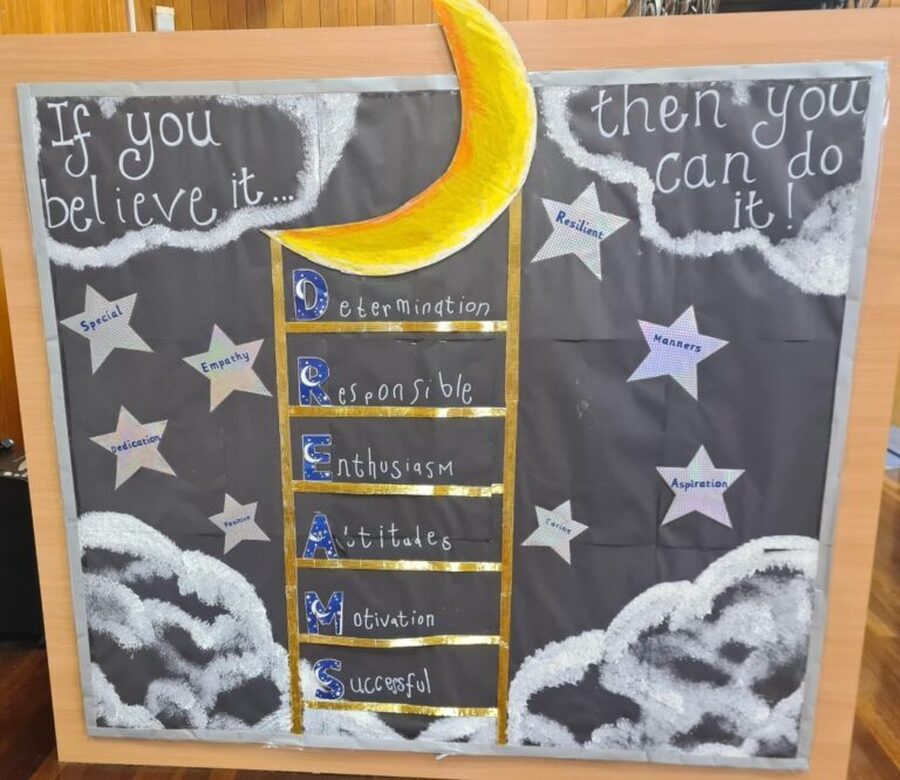 If you
believe it...
then you
can do
it!
Determination
Responsible
Enthusiasm
Attitudes
Motivation
Successful
Special
Empathy
Dedication
Positive
Resilient
Manners
Aspiration
Caring